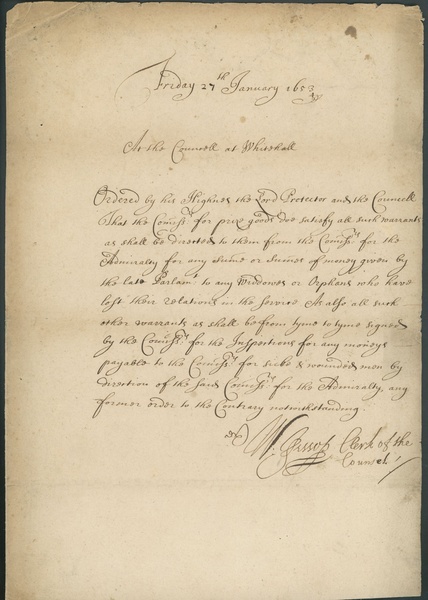 Friday 27th January 1653
At the Councell at Whitehall
Ordered by his Highnes the Lord Protector and the Councell
That the Comissrs for prize goods doe satisfy all such warrants
as shall be directed to them from the Comissrs for the
Admiralty for any sume or sumes of money given by
the late Parlamt to any Widdowes or Orphans who have
lost their relations in the service As also all such
other warrants as shall be from tyme to tyme signed
by the Comissrs for the Inspections for any moneys
payable to the Comissrs for sicke & wounded men by
direction of the said Comissrs for the Admiralty, any
former order to the Contrary notwithstanding.
W. Jessop Clerk of the
Counsel.